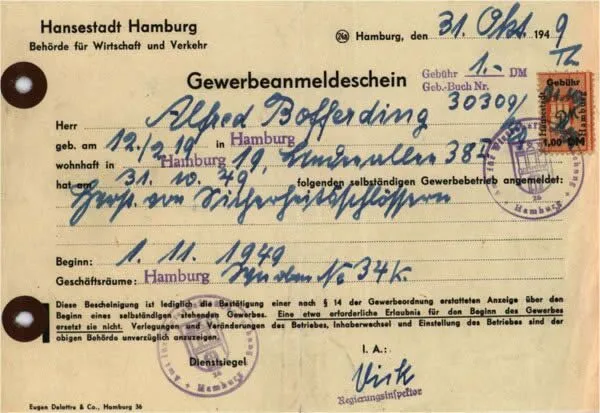 Hansestadt Hamburg
Behörde für Wirtschaft und Verkehr
24a Hamburg, den 31. Okt. 1949
Gebühr 1.- DM
Geb.-Buch Nr. 30309/
Gewerbeanmeldeschein
Gebühr
Hansestadt Hamburg
1,00 DM
Herr Alfred Bofferding
geb. am 12.2.19 in Hamburg
wohnhaft in Hamburg 19, Lindenallee 38 II
hat am 31.10.49 folgenden selbständigen Gewerbebetrieb angemeldet:
Herst. von Sicherheitsschlössern
Beginn: 1.11.1949
Geschäftsräume: Hamburg No 34 K.
Diese Bescheinigung ist lediglich die Bestätigung einer nach § 14 der Gewerbeordnung erstatteten Anzeige über den
Beginn eines selbständigen stehenden Gewerbes. Eine etwa erforderliche Erlaubnis für den Beginn des Gewerbes
ersetzt sie nicht. Verlegungen und Veränderungen des Betriebes, Inhaberwechsel und Einstellung des Betriebes sind der
obigen Behörde unverzüglich anzuzeigen.
Dienstsiegel
Hamburg
36
Hamburg
I. A.:
Regierungsinspektor
Eugen Delattre & Co., Hamburg 36